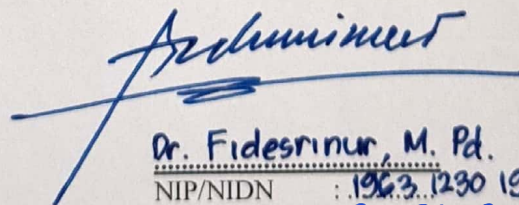 Dr. Fidesrinur, M. Pd.
NIP/NIDN : 1963 1230 19